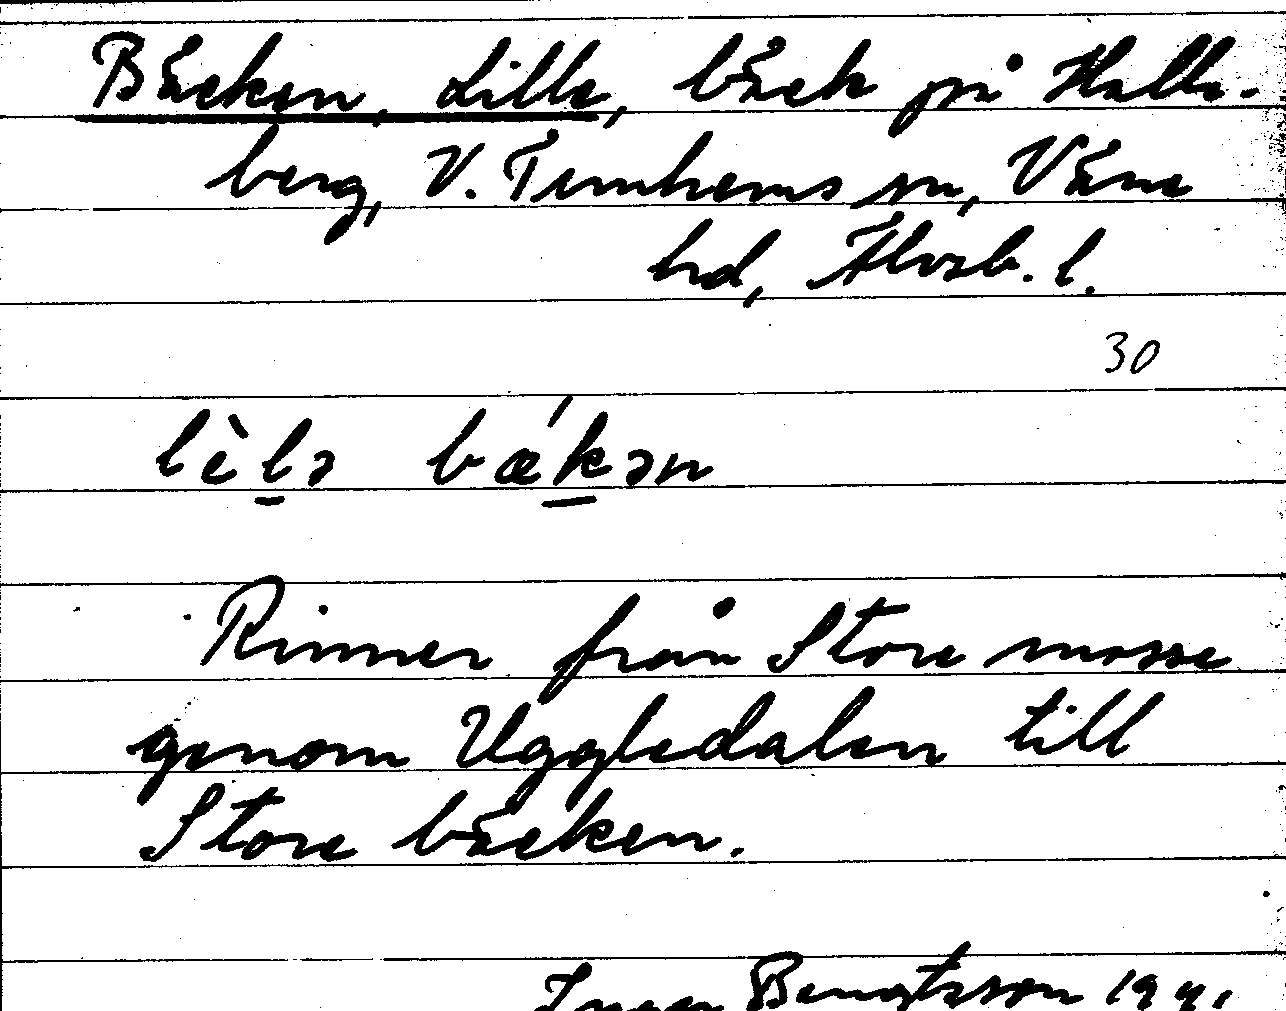 Bäcken, Lille, bäck på Halle-
berg, V. Tunhems sn, Väne
hd, Älvsb. l.
30
lèlə bǽkən
Rinner från Store mosse
genom Uggledalen till
Store bäcken.
Bengtsson 1941